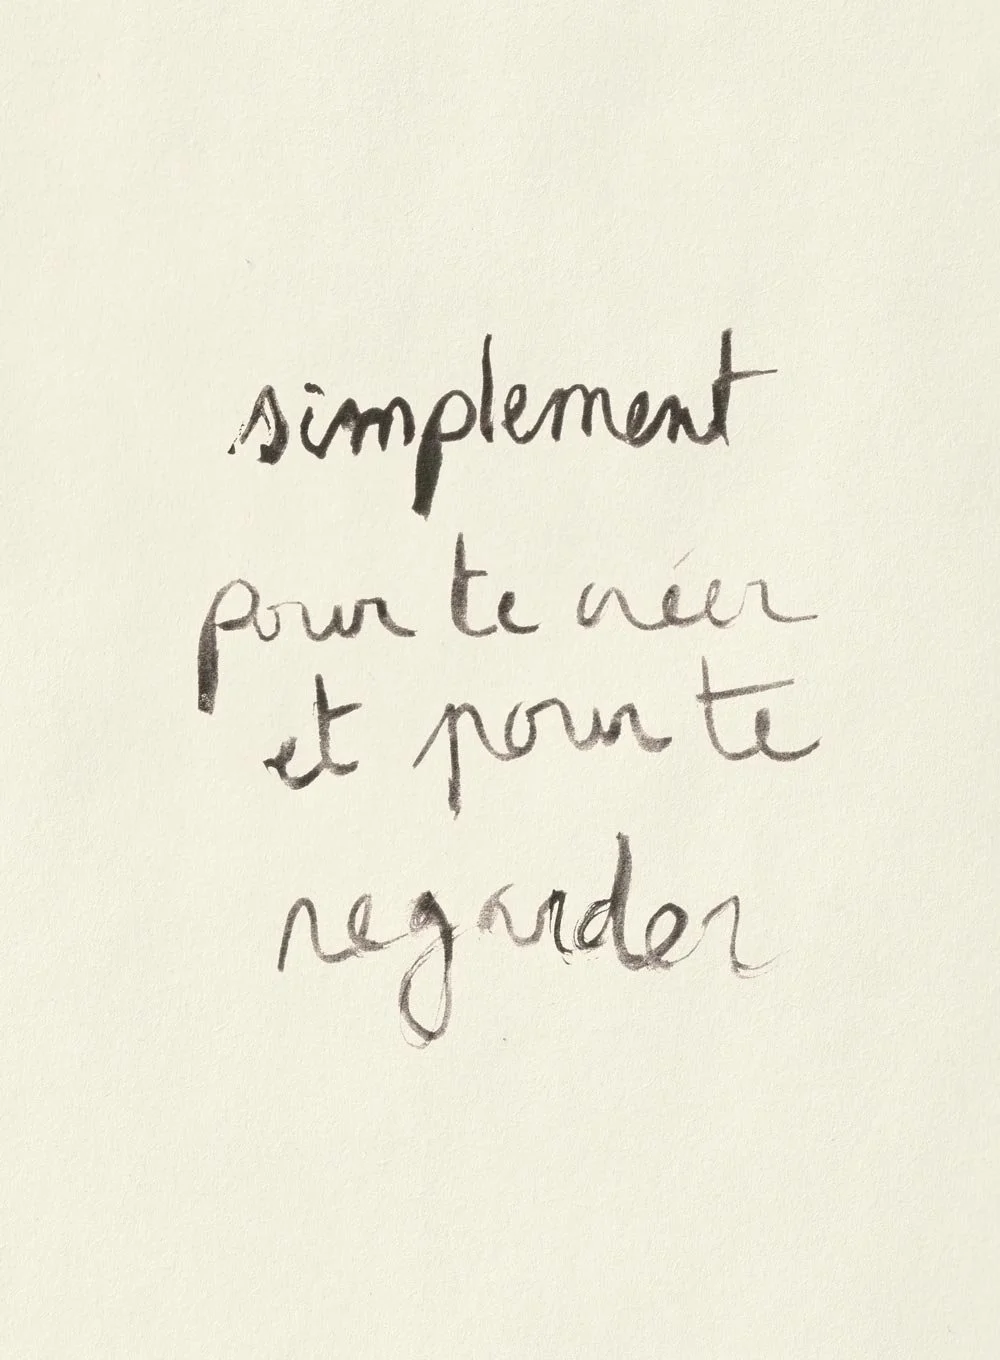 simplement
pour te créer
et pour te
regarder